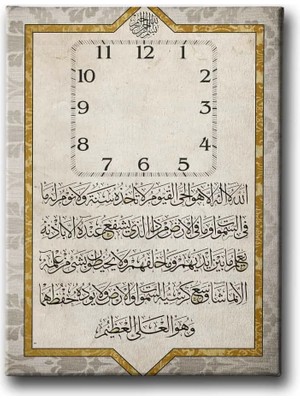 بسم الله الرحمن الرحيم
11 12 1
10 2
9 3
8 4
7 6 5
الله لا إله إلا هو الحي القيوم لا تأخذه سنة ولا نوم له ما
في السموات وما في الأرض من ذا الذي يشفع عنده إلا بإذنه
يعلم ما بين أيديهم وما خلفهم ولا يحيطون بشيء من علمه
إلا بما شاء وسع كرسيه السموات والأرض ولا يؤده حفظهما
وهو العلي العظيم